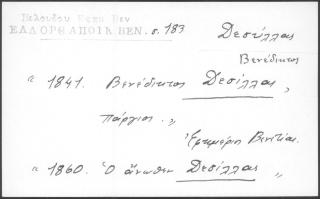 Βελούδου Εκκλ Βεν
ΕΛΛ ΟΡΘ ΑΠΟΙΚ ΒΕΝ. σ. 183
Δεσύλλας
Βενέδικτος
" 1841. Βενέδικτος Δεσίλλας "
Πάργιος. "
Ἐφημέριο Βενετίας.
" 1860. Ὁ ἄνωθεν Δεσίλλας "